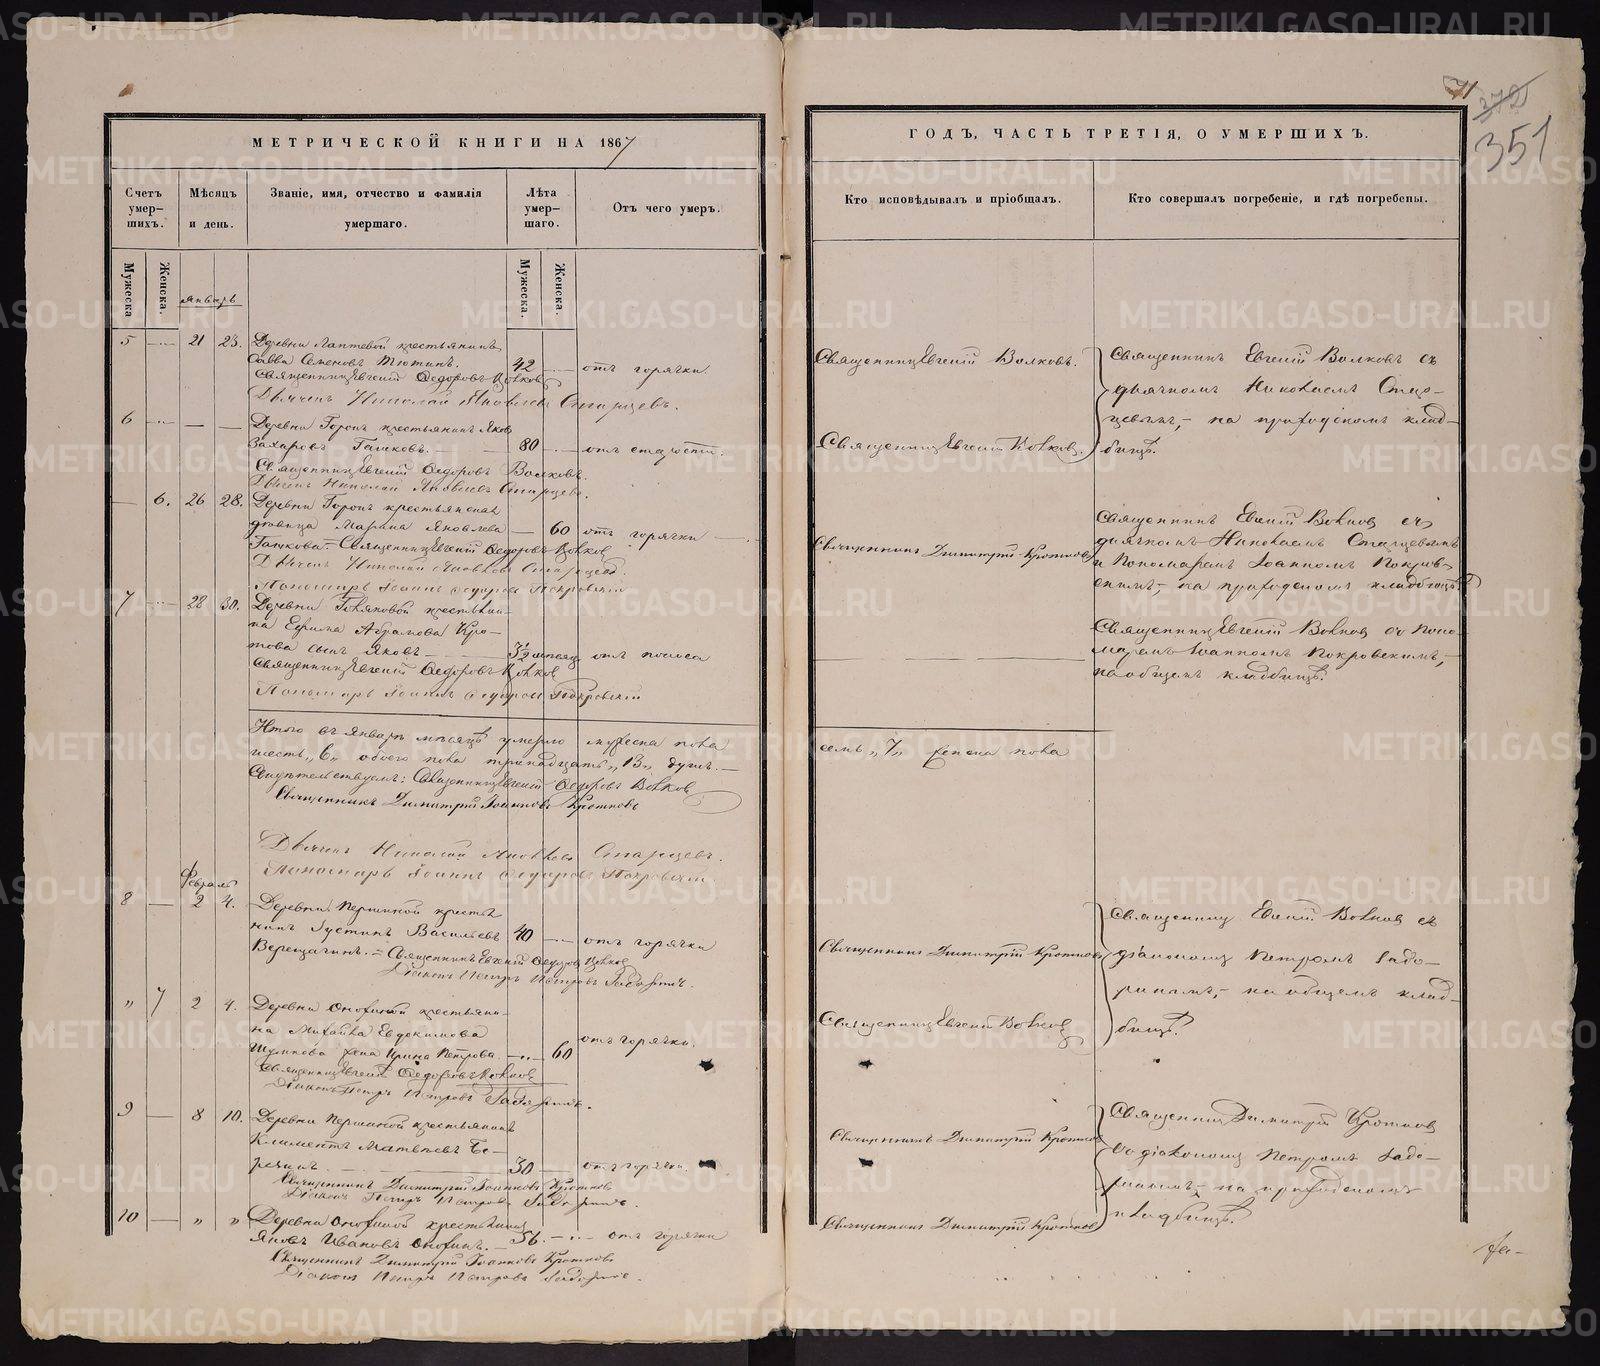 МЕТРИЧЕСКОЙ КНИГИ НА 1867
Счетъ умер-шихъ.
Мѣсяцъ и день.
Званіе, имя, отчество и фамилія умершаго.
Лѣта умер-шаго.
Отъ чего умеръ.
Мужеска.
Женска.
Мужеска.
Женска.
Январь
5 21 23. Деревни Лаптевой крестьянинъ
Савва Семеновъ Тютинъ. 42 отъ горячки
Священникъ Евгеній Ѳедоровъ Волковъ
Дьячекъ Николай Яковлевъ Старцевъ.
6 Деревни крестьянинъ Яковъ
Захаровъ 80 отъ старости.
Священникъ Евгеній Ѳедоровъ Волковъ.
Дьячекъ Николай Яковлевъ Старцевъ.
6. 26 28. Деревни крестьянская
вдовица Марина Яковлева 60 отъ горячки
Священникъ Евгеній Ѳедоровъ Волковъ
Дьячекъ Николай Яковлевъ Старцевъ.
Пономарь Іоаннъ Ѳедоровъ Покровскій
7 28 30. Деревни крестьяни-
на Ефима Абрамова Кро-
това сынъ Яковъ 3½ мѣсяц отъ поноса
Священникъ Евгеній Ѳедоровъ Волковъ
Пономарь Іоаннъ Ѳедоровъ Покровскій
Итого въ Январѣ мѣсяцѣ умерло мужеска пола
шесть „6„ обоего пола тринадцать „13„ душъ.
Свидѣтельствуемъ: Священникъ Евгеній Ѳедоровъ Волковъ
Священникъ Димитрій Іоанновъ Кротковъ
Дьячекъ Николай Яковлевъ Старцевъ.
Пономарь Іоаннъ Ѳедоровъ Покровскій.
Февраль
8 2 4. Деревни Першиной крестья
нинъ Іустинъ Васильевъ 40 отъ горячки
Верещагинъ. Священникъ Евгеній Ѳедоровъ Волковъ
Діаконъ Петръ Петровъ
„ 7 2 4. Деревни крестьяни-
на Михаила Евдокимова
жена Ирина Петрова. 60 отъ горячки.
Священникъ Евгеній Ѳедоровъ Волковъ
Діаконъ Петръ Петровъ
9 8 10. Деревни Першиной крестьянинъ
Климентъ Матвѣевъ Бе-
резинъ 30 отъ горячки.
Священникъ Димитрій Іоанновъ Кротковъ
Діаконъ Петръ Петровъ
10 „ „ Деревни крестьянинъ
Яковъ Ивановъ 56. отъ горячки
Священникъ Димитрій Іоанновъ Кротковъ
Діаконъ Петръ Петровъ
351
ГОДЪ, ЧАСТЬ ТРЕТІЯ, О УМЕРШИХЪ.
Кто исповѣдывалъ и пріобщалъ.
Кто совершалъ погребеніе, и гдѣ погребены.
Священникъ Евгеній Волковъ.
Священникъ Евгеній Волковъ.
Священникъ Евгеній Волковъ съ
дьячкомъ Николаемъ Стар-
цевымъ, на приходскомъ клад-
бищѣ.
Священникъ Димитрій Кротковъ
Священникъ Евгеній Волковъ съ
дьячкомъ Николаемъ Старцевымъ
и Пономаремъ Іоанномъ Покров-
скимъ, на приходскомъ кладбищѣ.
Священникъ Евгеній Волковъ съ Поно-
маремъ Іоанномъ Покровскимъ,
на общемъ кладбищѣ.
семь „7„ женска пола
Священникъ Димитрій Кротковъ
Священникъ Евгеній Волковъ
Священникъ Евгеній Волковъ съ
діакономъ Петромъ
на общемъ клад-
бищѣ.
Священникъ Димитрій Кротковъ
Священникъ Димитрій Кротковъ
Священникъ Димитрій Кротковъ
со діакономъ Петромъ
на приходскомъ
кладбищѣ.
METRIKI.GASO-URAL.RU